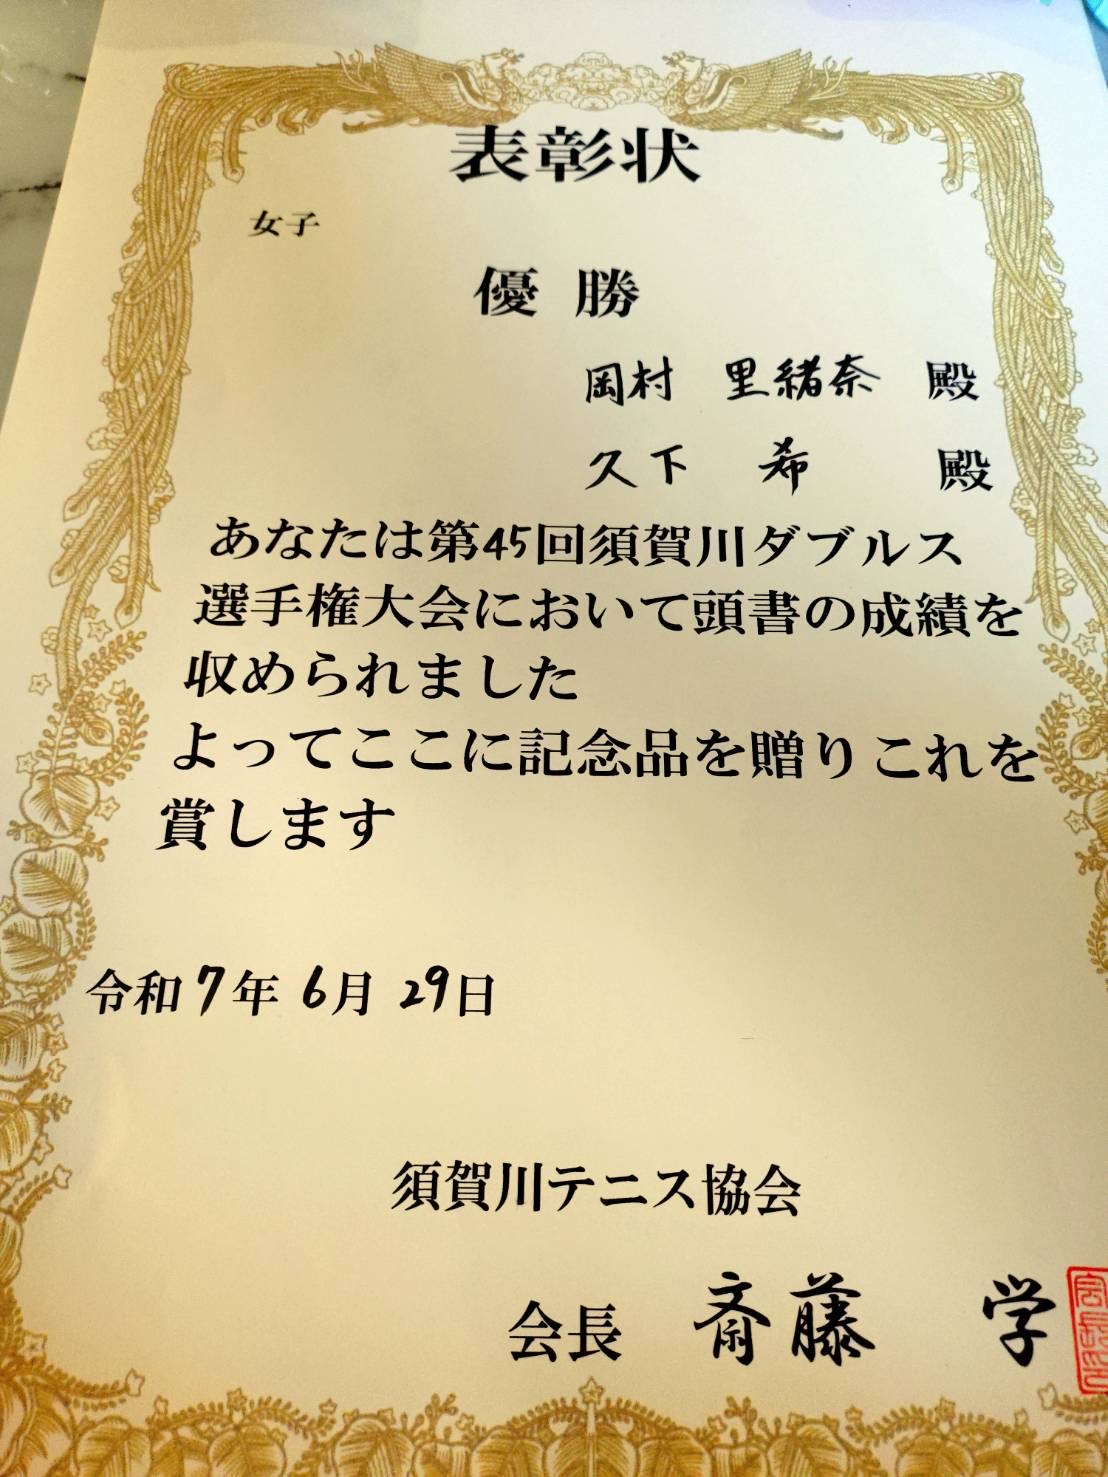 表彰状
女子
優勝
岡村 里緒奈 殿
久下 希 殿
あなたは第45回須賀川ダブルス
選手権大会において頭書の成績を
収められました
よってここに記念品を贈りこれを
賞します
令和7年6月29日
須賀川テニス協会
会長 斎藤 学